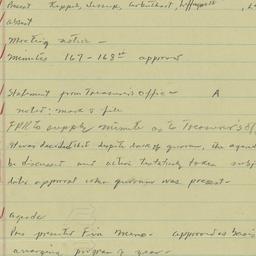 Present Keppel, Jessup, Arbuthnot,
absent
Meeting notice -
Minutes 167 - 168th approved
Statement from Treasurer's office A
noted: mark & file
FPK to supply minute as to Treasurer's
It was decided that despite lack of quorum, the agenda
be discussed and action tentatively taken subj
later approval when quorum was present -
agenda
Pres presented Fin Memo - approved as basis
arranging program of year -